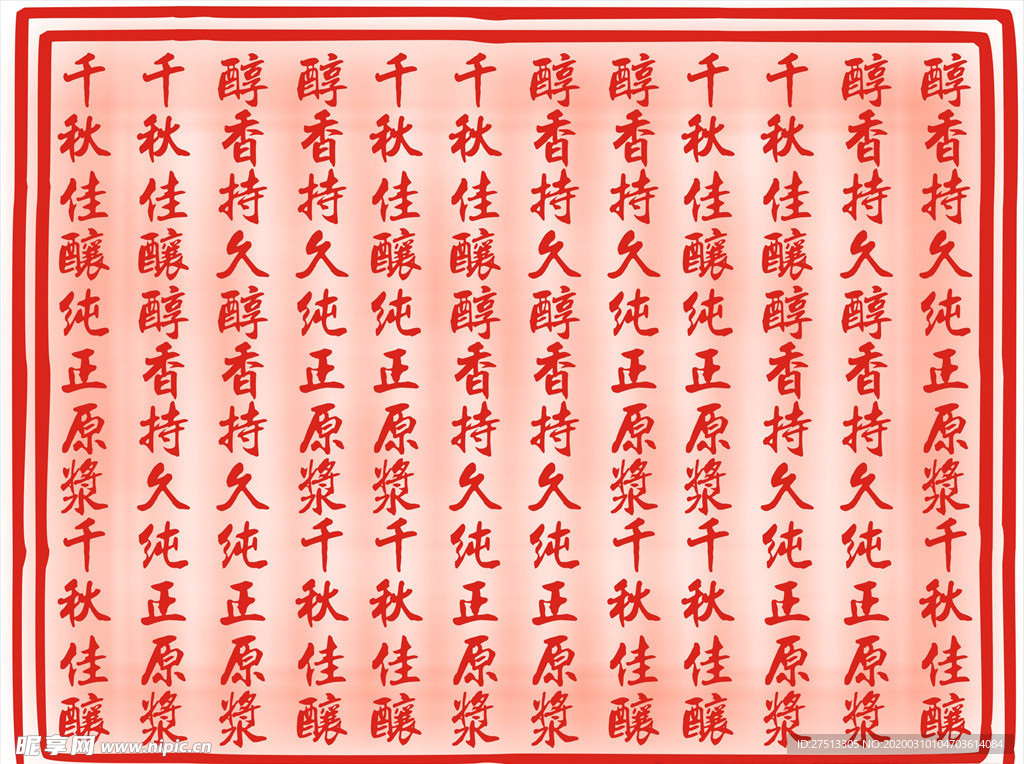 醇香持久纯正原漿千秋佳釀
醇香持久醇香持久纯正原漿
千秋佳釀醇香持久纯正原漿
千秋佳釀纯正原漿千秋佳釀
醇香持久纯正原漿千秋佳釀
醇香持久醇香持久纯正原漿
千秋佳釀醇香持久纯正原漿
千秋佳釀纯正原漿千秋佳釀
醇香持久纯正原漿千秋佳釀
醇香持久醇香持久纯正原漿
千秋佳釀醇香持久纯正原漿
千秋佳釀纯正原漿千秋佳釀
昵享网 www.nipic.cn
ID:27513305 NO:20200310104703614084